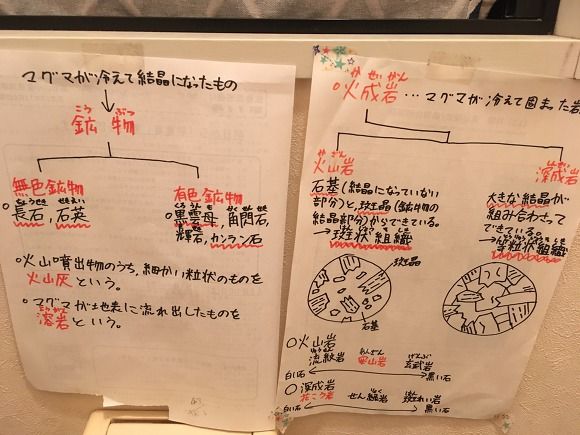 マグマが冷えて結晶になったもの
こう ぶつ
鉱物
無色鉱物
ちょうせき せきえい
長石,石英
有色鉱物
黒雲母,角閃石,
輝石,カンラン石
火山噴出物のうち,細かい粒状のものを
火山灰という。
マグマが地表に流れ出したものを
溶岩という。
か せい がん
火成岩…マグマが冷えて固まった岩
火山岩
石基(結晶になっていない
部分)と,斑晶(鉱物の
結晶部分)からできている。
→斑状組織
斑晶
石基
深成岩
大きな結晶が
組み合わさって
できている。
→等粒状組織
○火山岩
流紋岩 安山岩 玄武岩
白い石 黒い石
○深成岩
花こう岩 せん緑岩 斑れい岩
白い石 黒い石